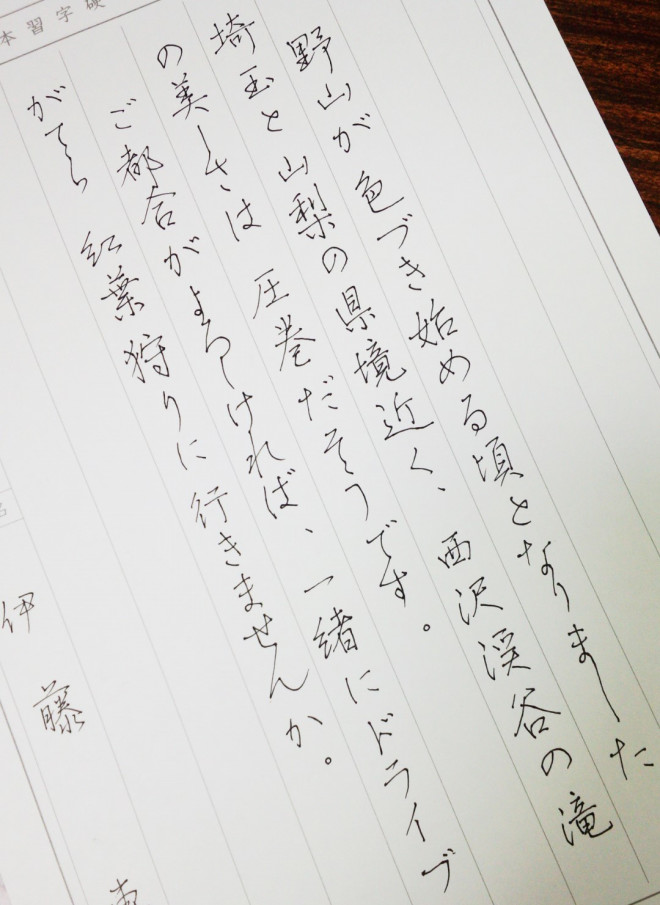 本習字硬
野山が色づき始める頃となりました
埼玉と山梨の県境近く、西沢渓谷の滝
の美しさは圧巻だそうです。
ご都合がよろしければ、一緒にドライブ
がてら紅葉狩りに行きませんか。
名
伊藤